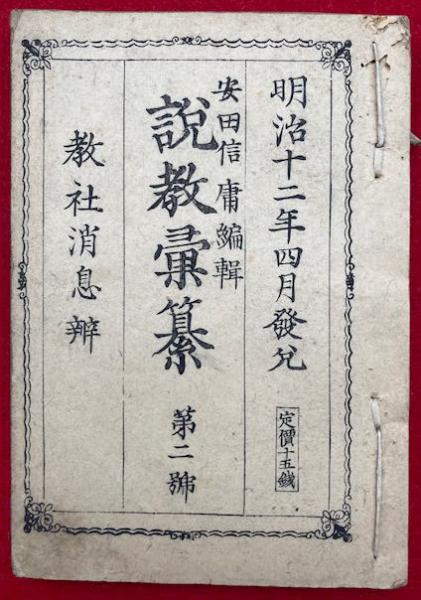 明治十二年四月發兌
定價十五錢
安田信庸編輯
說教彙纂
第二號
教社消息辨